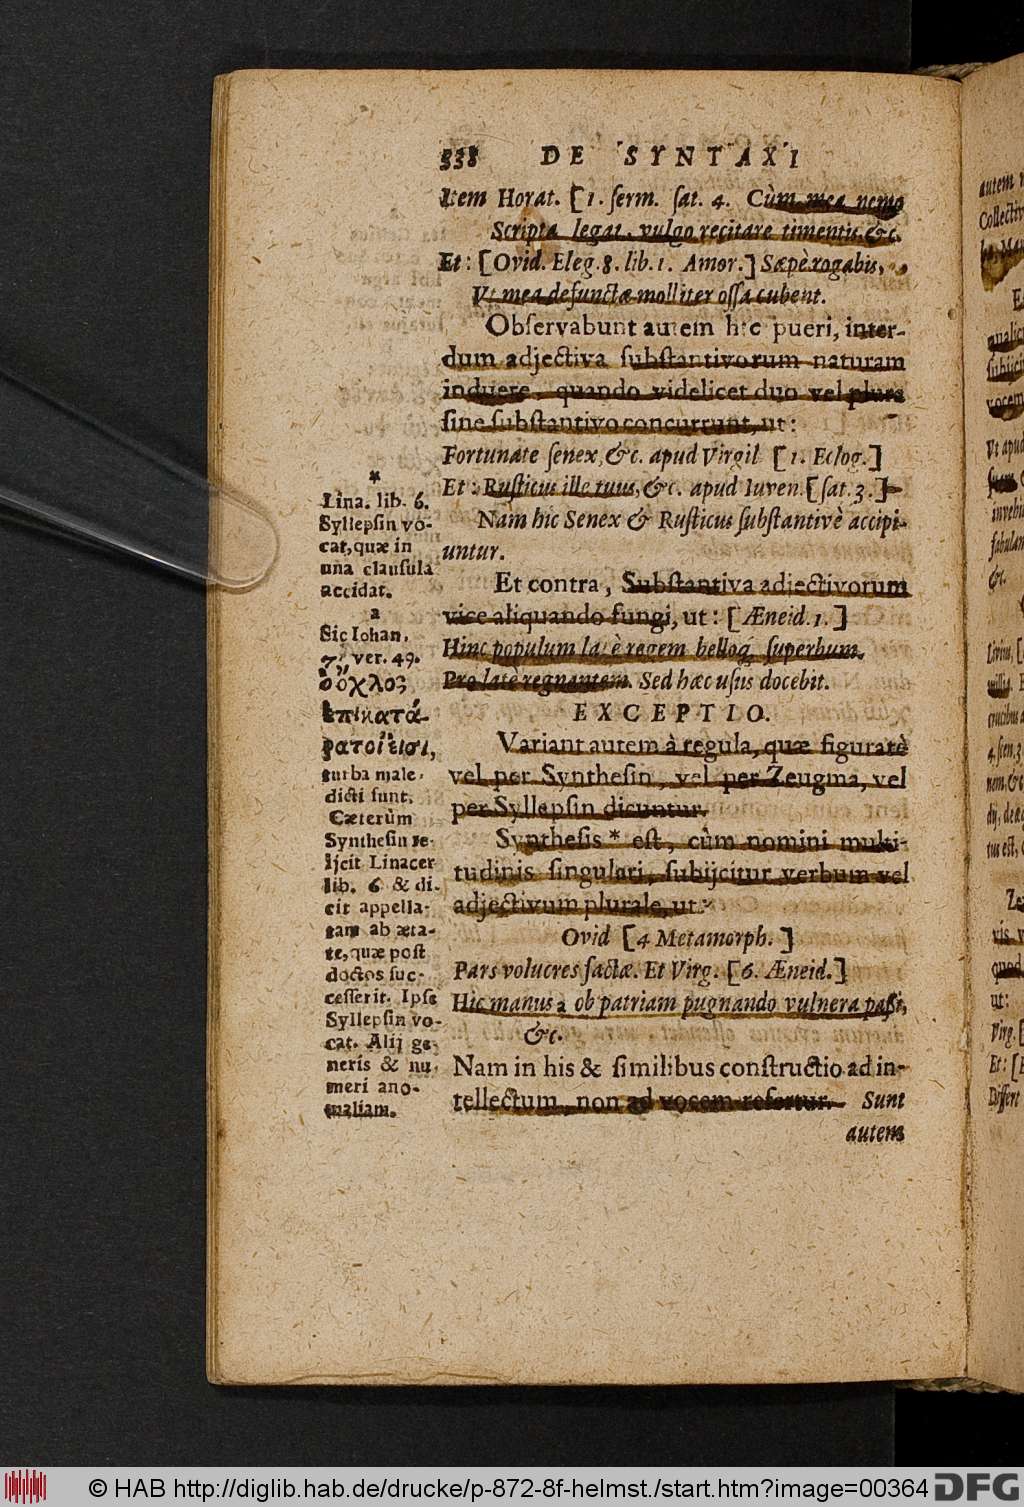 338 DE SYNTAXI
Item Horat. [1. ſerm. ſat. 4. Cùm mea nemo
Scripta legat, vulgo recitare timentis, &c.
Et: [Ovid. Eleg. 8. lib. 1. Amor.] Sæpè rogabis,
Vt mea defunctæ molliter oſſa cubent.
Obſervabunt autem hic pueri, inter-
dum adjectiva ſubſtantivorum naturam
induere, quando videlicet duo vel plura
ſine ſubſtantivo concurrunt, ut:
Fortunate ſenex, &c. apud Virgil [1. Eclog.]
Et: Ruſticus ille tuus, &c. apud Iuven. [ſat. 3.]
Nam hic Senex & Ruſticus ſubſtantivè accipi-
untur.
Et contra, Subſtantiva adjectivorum
vice aliquando fungi, ut: [Æneid. 1.]
Hinc populum latè regem belloq́; ſuperbum.
Pro latè regnantem. Sed hæc uſus docebit.
EXCEPTIO.
Variant autem à regula, quæ figuratè
vel per Syntheſin, vel per Zeugma, vel
per Syllepſin dicuntur.
Syntheſis * eſt, cùm nomini multi-
tudinis ſingulari, ſubijcitur verbum vel
adjectivum plurale, ut:
Ovid [4 Metamorph.]
Pars volucres factæ. Et Virg. [6. Æneid.]
Hic manus a ob patriam pugnando vulnera paſſi,
&c.
Nam in his & ſimilibus conſtructio ad in-
tellectum, non ad vocem refertur. Sunt
autem
*
Lina. lib. 6.
Syllepſin vo-
cat, quæ in
una clauſula
accidat.
a
Sic Iohan.
7, ver. 49.
ὁ ὄχλος
ἐπικατά-
ρατοί εἰσι,
turba male-
dicti ſunt.
Cæterùm
Syntheſin re-
ijcit Linacer
lib. 6 & di-
cit appella-
tam ab æta-
te, quæ poſt
doctos ſuc-
ceſſerit. Ipſe
Syllepſin vo-
cat. Alij ge-
neris & nu-
meri ano-
maliam.
autem
Collectiv
Vt apud
invehi
fabulam
&c.
Livius, [
millia.
4. ſien. 3
nem, &c
dij, deæq
tus eſt,
Ze
vis v
quod
ut:
Virg. [
Et: [
Differt
© HAB http://diglib.hab.de/drucke/p-872-8f-helmst./start.htm?image=00364 DFG